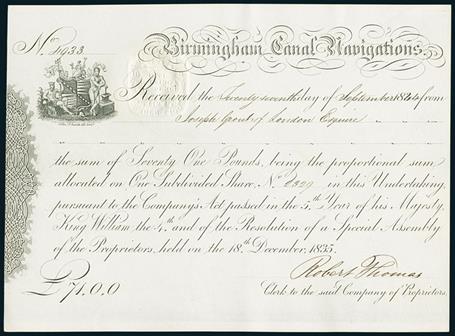 No. 1933 Birmingham Canal Navigations.
Received the Twenty seventh day of September 1844 from
Joseph of London Esquire
the sum of Seventy One Pounds, being the proportional sum
allocated on One Subdivided Share, No. in this Undertaking,
pursuant to the Company's Act passed in the 5th Year of his Majesty,
King William the 4th and of the Resolution of a Special Assembly
of the Proprietors, held on the 18th December, 1835.
Robert Thomas
£71.0.0 Clerk to the said Company of Proprietors.